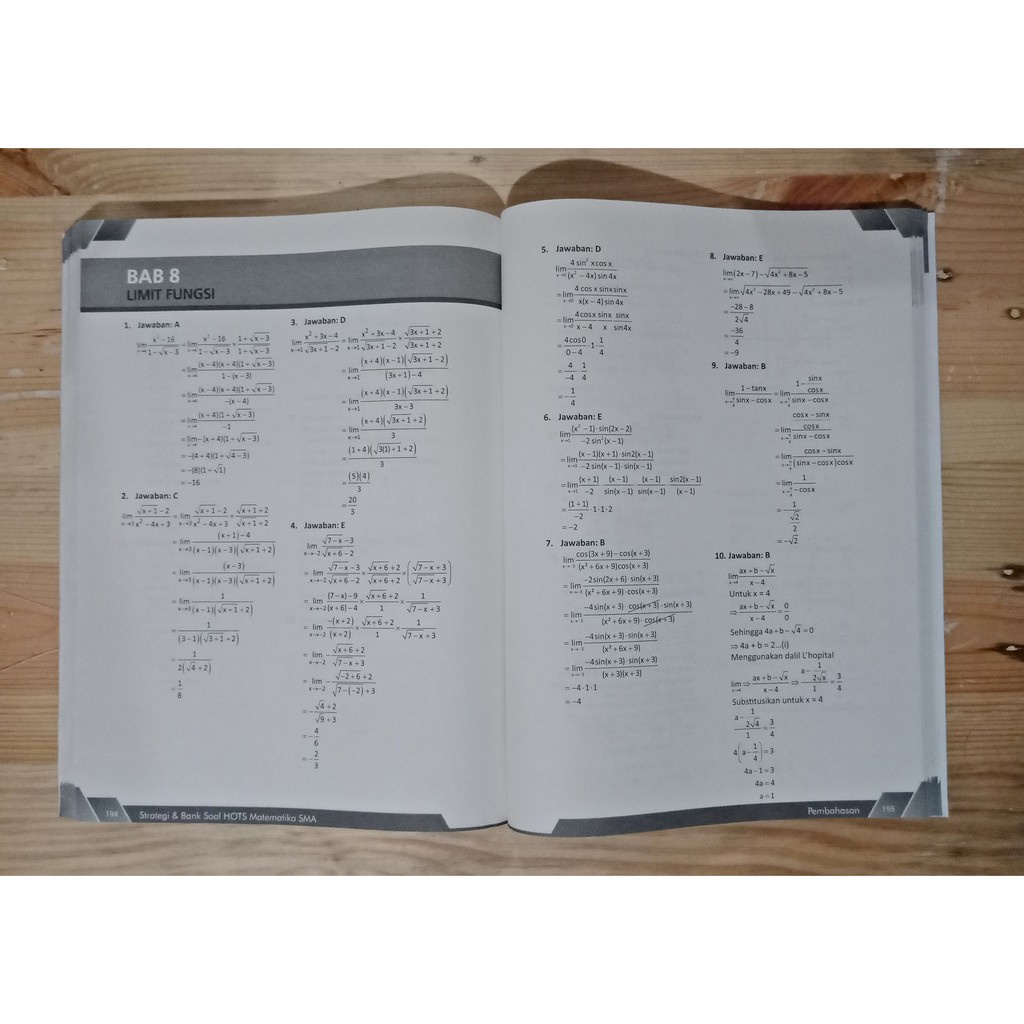 BAB 8
LIMIT FUNGSI
1. Jawaban: A
lim x→4 (x²−16)/(1−√(x−3)) = lim x→4 (x²−16)/(1−√(x−3)) × (1+√(x−3))/(1+√(x−3))
= lim x→4 (x−4)(x+4)(1+√(x−3))/(1−(x−3))
= lim x→4 (x−4)(x+4)(1+√(x−3))/(−(x−4))
= lim x→4 (x+4)(1+√(x−3))/(−1)
= lim x→4 −(x+4)(1+√(x−3))
= −(4+4)(1+√(4−3))
= −(8)(1+√1)
= −16
2. Jawaban: C
lim x→3 (√(x+1)−2)/(x²−4x+3) = lim x→3 (√(x+1)−2)/(x²−4x+3) × (√(x+1)+2)/(√(x+1)+2)
= lim x→3 ((x+1)−4)/((x−1)(x−3)(√(x+1)+2))
= lim x→3 (x−3)/((x−1)(x−3)(√(x+1)+2))
= lim x→3 1/((x−1)(√(x+1)+2))
= 1/((3−1)(√(3+1)+2))
= 1/(2(√4+2))
= 1/8
3. Jawaban: D
lim x→1 (x²+3x−4)/(√(3x+1)−2) = lim x→1 (x²+3x−4)/(√(3x+1)−2) × (√(3x+1)+2)/(√(3x+1)+2)
= lim x→1 (x+4)(x−1)(√(3x+1)−2)/((3x+1)−4)
= lim x→1 (x+4)(x−1)(√(3x+1)+2)/(3x−3)
= lim x→1 (x+4)(√(3x+1)+2)/3
= (1+4)(√(3(1)+1)+2)/3
= (5)(4)/3
= 20/3
4. Jawaban: E
lim x→−2 (√(7−x)−3)/(√(x+6)−2)
= lim x→−2 (√(7−x)−3)/(√(x+6)−2) × (√(x+6)+2)/(√(x+6)+2) × ((√(7−x)+3)/(√(7−x)+3))
= lim x→−2 ((7−x)−9)/((x+6)−4) × (√(x+6)+2)/1 × 1/(√(7−x)+3)
= lim x→−2 −(x+2)/(x+2) × (√(x+6)+2)/1 × 1/(√(7−x)+3)
= lim x→−2 −(√(x+6)+2)/(√(7−x)+3)
= lim x→−2 −(√(−2+6)+2)/(√(7−(−2))+3)
= −(√4+2)/(√9+3)
= −4/6
= −2/3
194 Strategi & Bank Soal HOTS Matematika SMA
5. Jawaban: D
lim x→0 (4 sin² x cos x)/((x²−4x) sin 4x)
= lim x→0 (4 cos x sin x sin x)/(x(x−4) sin 4x)
= lim x→0 (4cos x)/(x−4) (sin x)/x (sin x)/(sin 4x)
= (4 cos 0)/(0−4) · 1 · 1/4
= 4/−4 · 1/4
= −1/4
6. Jawaban: E
lim x→1 ((x²−1)·sin(2x−2))/(−2 sin²(x−1))
= lim x→1 ((x−1)(x+1)·sin2(x−1))/(−2 sin(x−1)·sin(x−1))
= lim x→1 (x+1)/−2 · (x−1)/sin(x−1) · (x−1)/sin(x−1) · sin2(x−1)/(x−1)
= (1+1)/−2 · 1·1·2
= −2
7. Jawaban: B
lim x→−3 (cos(3x+9)−cos(x+3))/((x²+6x+9)cos(x+3))
= lim x→−3 (−2sin(2x+6)·sin(x+3))/((x²+6x+9)·cos(x+3))
= lim x→−3 (−4sin(x+3)·cos(x+3)·sin(x+3))/((x²+6x+9)·cos(x+3))
= lim x→−3 (−4sin(x+3)·sin(x+3))/(x²+6x+9)
= lim x→−3 (−4sin(x+3)·sin(x+3))/((x+3)(x+3))
= −4·1·1
= −4
8. Jawaban: E
lim x→∞ (2x−7)−√(4x²+8x−5)
= lim x→∞ √(4x²−28x+49)−√(4x²+8x−5)
= (−28−8)/(2√4)
= −36/4
= −9
9. Jawaban: B
lim x→π/4 (1−tanx)/(sinx−cosx) = lim x→π/4 (1−sinx/cosx)/(sinx−cosx)
= lim x→π/4 ((cosx−sinx)/cosx)/(sinx−cosx)
= lim x→π/4 (cosx−sinx)/((sinx−cosx)cosx)
= lim x→π/4 1/(−cosx)
= −1/(√2/2)
= −√2
10. Jawaban: B
lim x→4 (ax+b−√x)/(x−4)
Untuk x = 4
⇒ (ax+b−√x)/(x−4) = 0/0
Sehingga 4a+b−√4=0
⇒ 4a+b = 2...(i)
Menggunakan dalil L'hopital
lim x→4 ⇒ (ax+b−√x)/(x−4) ⇒ (a−1/(2√x))/1 = 3/4
Substitusikan untuk x = 4
(a−1/(2√4))/1 = 3/4
4(a−1/4)=3
4a−1=3
4a=4
a=1
Pembahasan 195